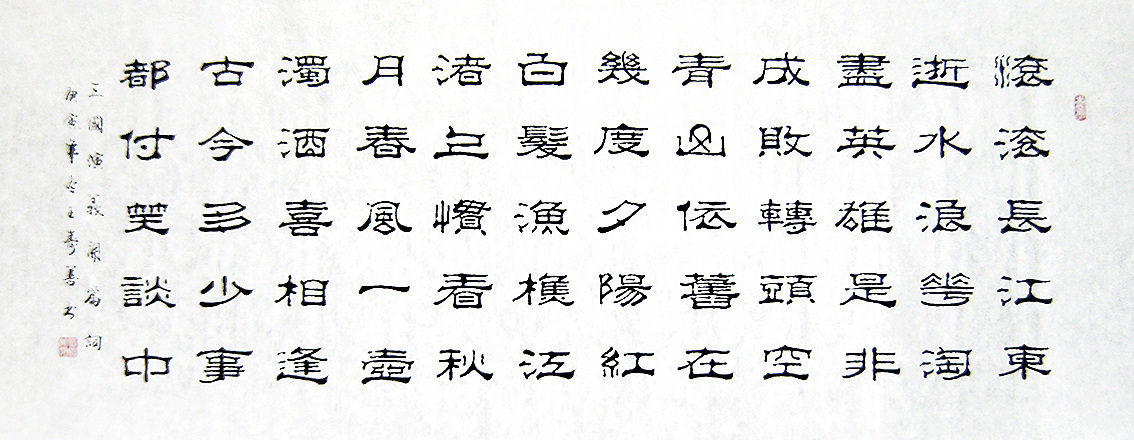 滾滾長江東
逝水浪花淘
盡英雄是非
成敗轉頭空
青山依舊在
幾度夕陽紅
白髮漁樵江
渚上慣看秋
月春風一壺
濁酒喜相逢
古今多少事
都付笑談中
三國演義開篇詞
庚寅年冬王壽善书